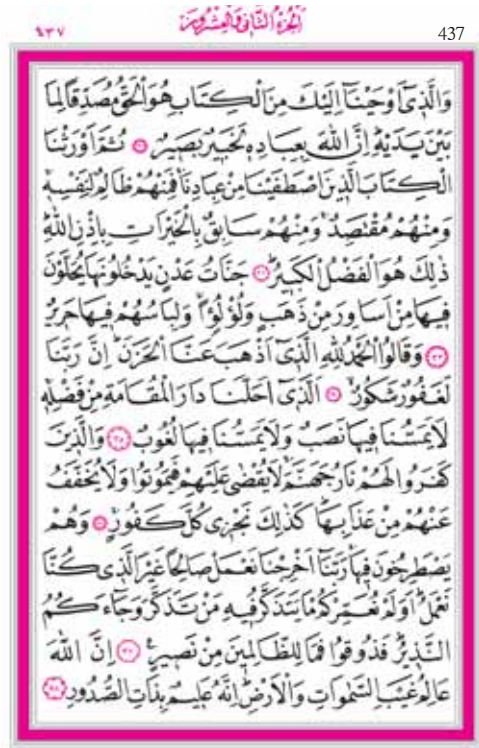 ٤٣٧ الجزء الثاني والعشرون 437
وَالَّذِي أَوْحَيْنَا إِلَيْكَ مِنَ الْكِتَابِ هُوَ الْحَقُّ مُصَدِّقًا لِمَا
بَيْنَ يَدَيْهِ إِنَّ اللهَ بِعِبَادِهِ لَخَبِيرٌ بَصِيرٌ ﴿٣١﴾ ثُمَّ أَوْرَثْنَا
الْكِتَابَ الَّذِينَ اصْطَفَيْنَا مِنْ عِبَادِنَا فَمِنْهُمْ ظَالِمٌ لِنَفْسِهِ
وَمِنْهُمْ مُقْتَصِدٌ وَمِنْهُمْ سَابِقٌ بِالْخَيْرَاتِ بِإِذْنِ اللهِ
ذَلِكَ هُوَ الْفَضْلُ الْكَبِيرُ ﴿٣٢﴾ جَنَّاتُ عَدْنٍ يَدْخُلُونَهَا يُحَلَّوْنَ
فِيهَا مِنْ أَسَاوِرَ مِنْ ذَهَبٍ وَلُؤْلُؤًا وَلِبَاسُهُمْ فِيهَا حَرِيرٌ
﴿٣٣﴾ وَقَالُوا الْحَمْدُ لِلهِ الَّذِي أَذْهَبَ عَنَّا الْحَزَنَ إِنَّ رَبَّنَا
لَغَفُورٌ شَكُورٌ ﴿٣٤﴾ الَّذِي أَحَلَّنَا دَارَ الْمُقَامَةِ مِنْ فَضْلِهِ
لَا يَمَسُّنَا فِيهَا نَصَبٌ وَلَا يَمَسُّنَا فِيهَا لُغُوبٌ ﴿٣٥﴾ وَالَّذِينَ
كَفَرُوا لَهُمْ نَارُ جَهَنَّمَ لَا يُقْضَى عَلَيْهِمْ فَيَمُوتُوا وَلَا يُخَفَّفُ
عَنْهُمْ مِنْ عَذَابِهَا كَذَلِكَ نَجْزِي كُلَّ كَفُورٍ ﴿٣٦﴾ وَهُمْ
يَصْطَرِخُونَ فِيهَا رَبَّنَا أَخْرِجْنَا نَعْمَلْ صَالِحًا غَيْرَ الَّذِي كُنَّا
نَعْمَلُ أَوَلَمْ نُعَمِّرْكُمْ مَا يَتَذَكَّرُ فِيهِ مَنْ تَذَكَّرَ وَجَاءَكُمُ
النَّذِيرُ فَذُوقُوا فَمَا لِلظَّالِمِينَ مِنْ نَصِيرٍ ﴿٣٧﴾ إِنَّ اللهَ
عَالِمُ غَيْبِ السَّمَوَاتِ وَالْأَرْضِ إِنَّهُ عَلِيمٌ بِذَاتِ الصُّدُورِ ﴿٣٨﴾